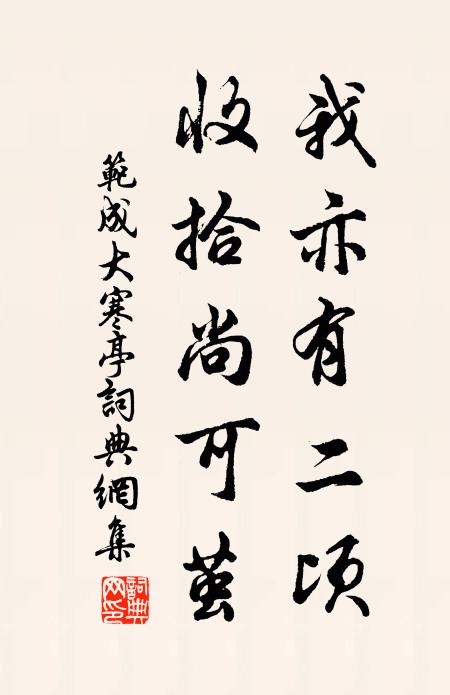 我亦有二頃
收拾尚可茧
範成大寒亭詞典網集
詞典网印